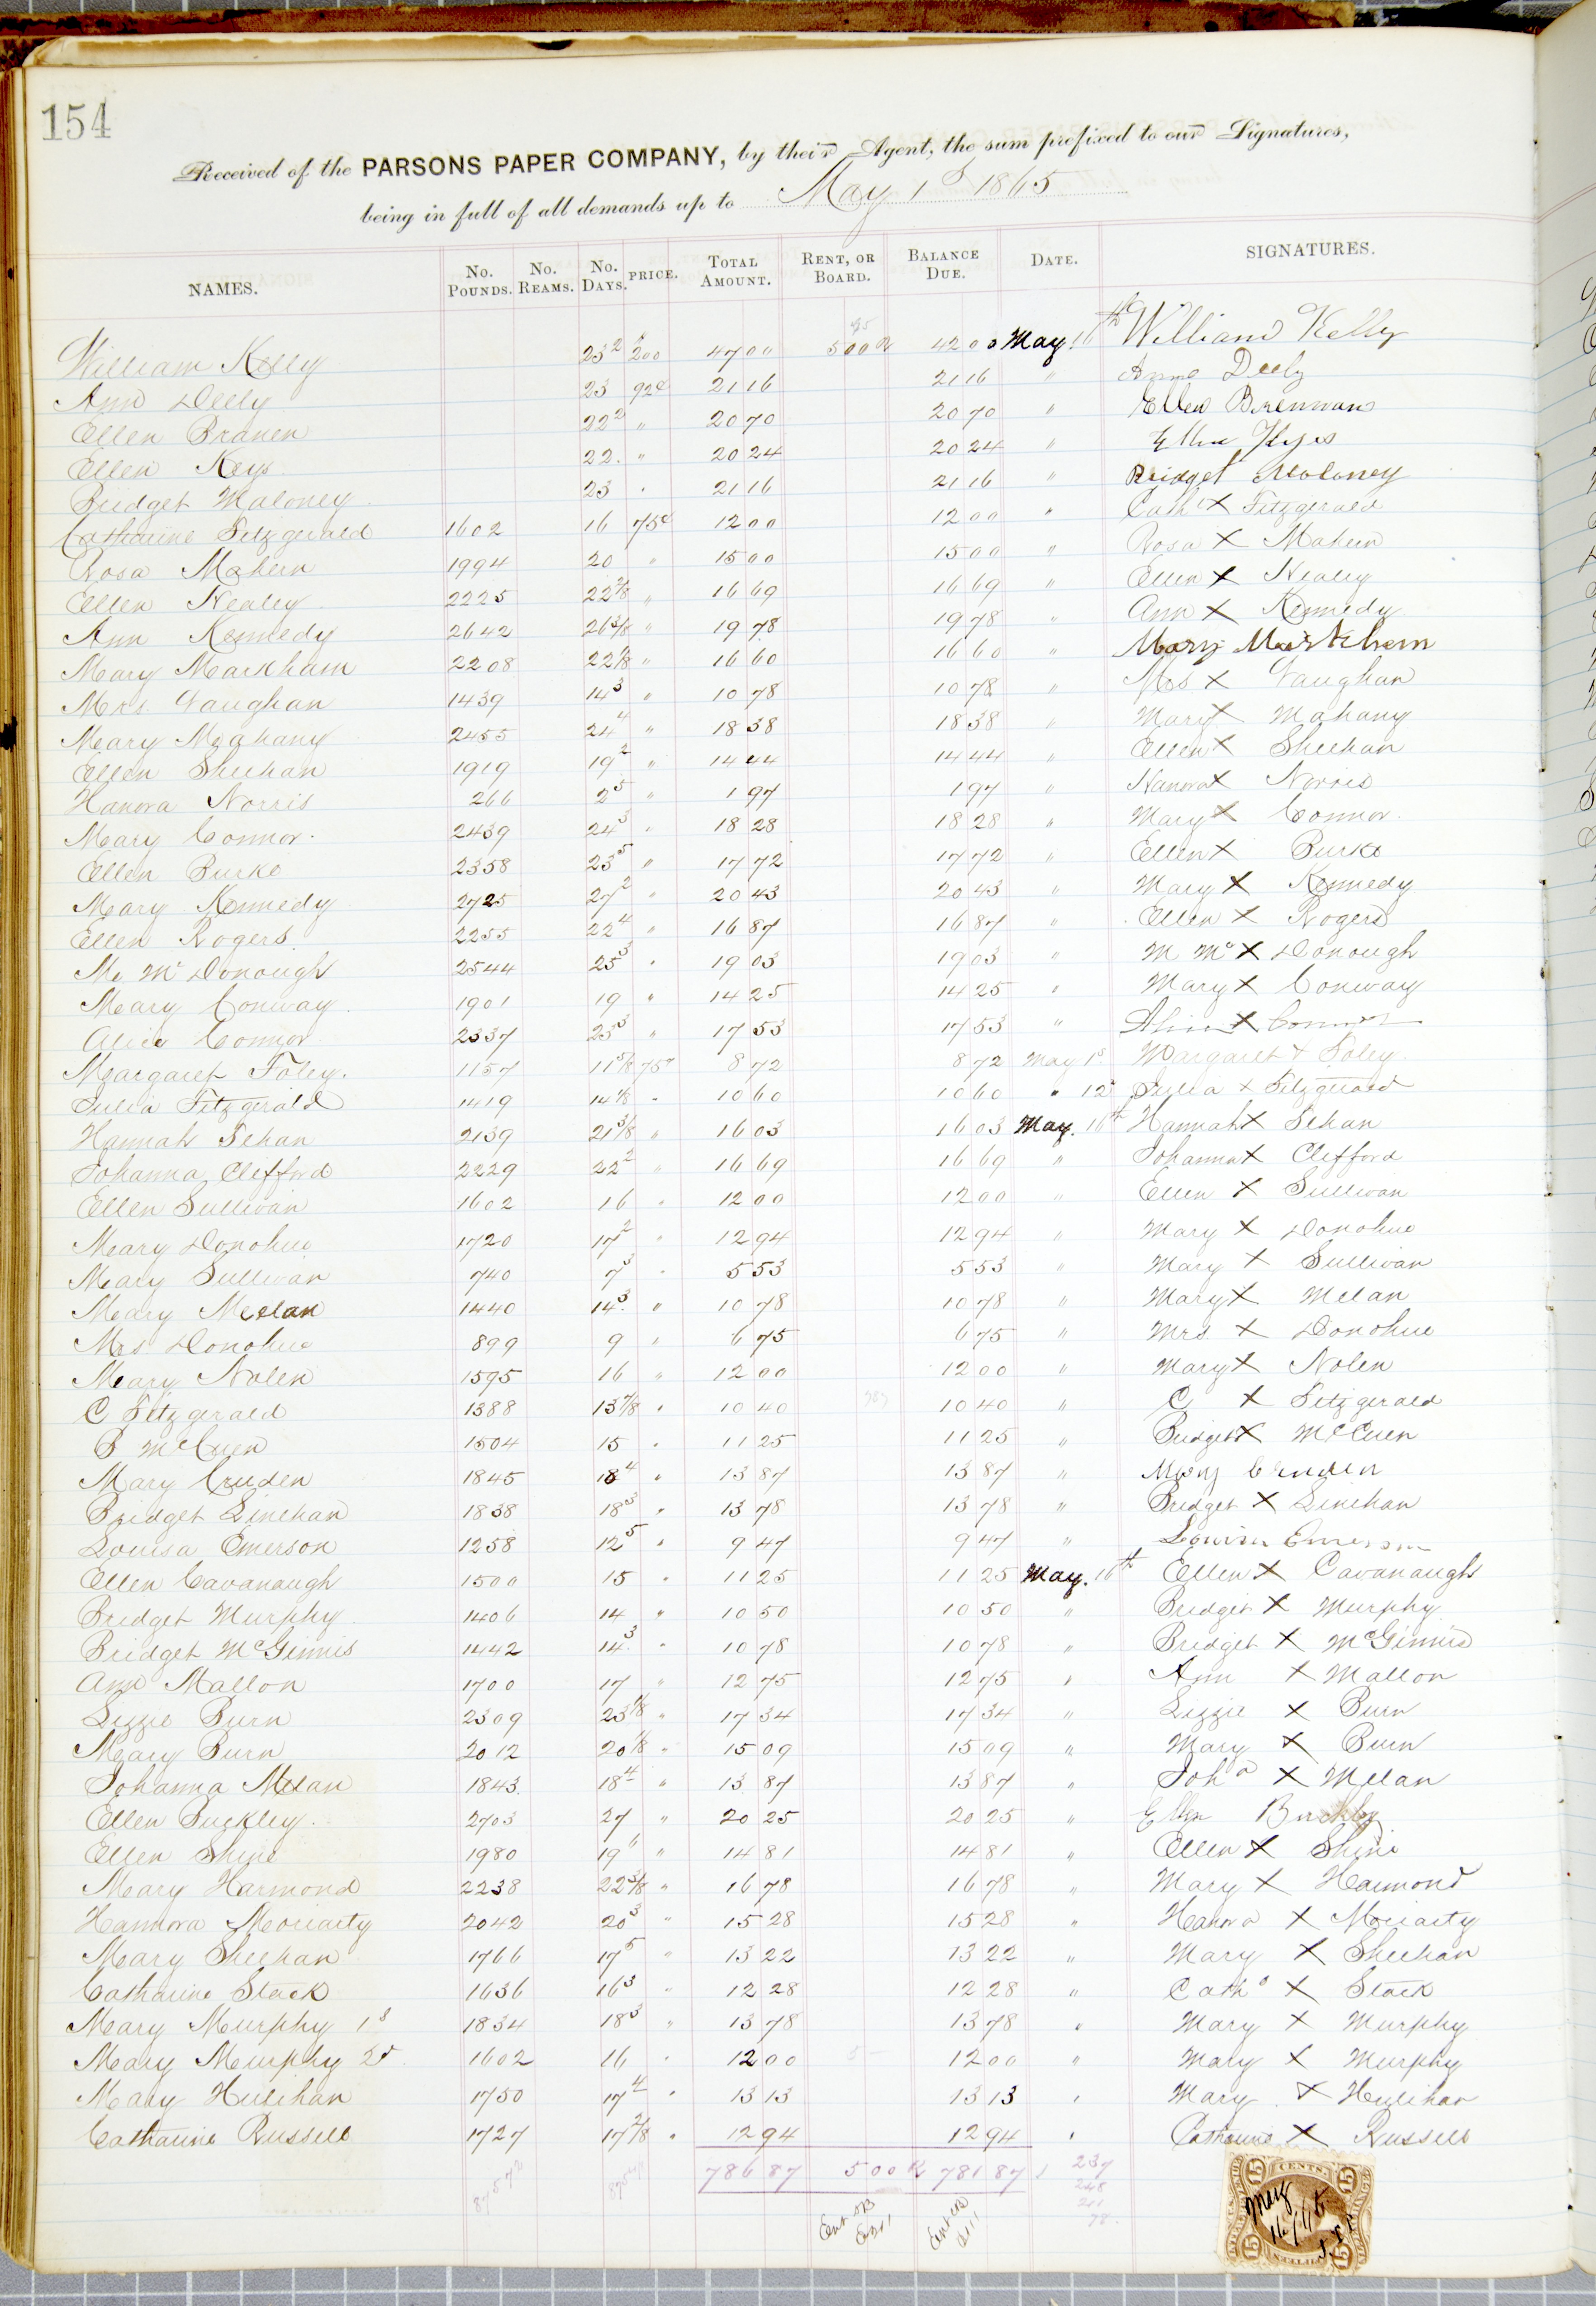 154
Received of the PARSONS PAPER COMPANY, by their Agent, the sum prefixed to our Signatures,
being in full of all demands up to May 1st 1865
NAMES. No. Pounds. No. Reams. No. Days. PRICE. Total Amount. Rent, or Board. Balance Due. Date. SIGNATURES.
William Kelly 23 2 200 47 00 5 00 R 42 00 May 16th William Kelly
Ann Deely 23 92c 21 16 21 16 " Anne Deely
Ellen Branen 22 2 " 20 70 20 70 " Ellen Brennan
Ellen Keys 22. " 20 24 20 24 " Ellen Keyes
Bridget Maloney 23 " 21 16 21 16 " Bridget Moloney
Catharine Fitzgerald 1602 16 75c 12 00 12 00 " Cathe X Fitzgerald
Rosa Mahern 1994 20 " 15 00 15 00 " Rosa X Mahern
Ellen Nealey 2225 22 2/8 " 16 69 16 69 " Ellen X Nealey
Ann Kennedy 2642 26 3/8 " 19 78 19 78 " Ann X Kennedy
Mary Markham 2208 22 1/8 " 16 60 16 60 " Mary Markham
Mrs. Vaughan 1439 14 3 " 10 78 10 78 " Mrs X Vaughan
Mary Mahany 2455 24 4 " 18 38 18 38 " Mary X Mahany
Ellen Sheehan 1919 19 2 " 14 44 14 44 " Ellen X Sheehan
Hanora Norris 266 2 5 " 1 97 1 97 " Hanora X Norris
Mary Connor. 2439 24 3 " 18 28 18 28 " Mary X Connor.
Ellen Burke 2358 23 5 " 17 72 17 72 " Ellen X Burke
Mary Kennedy 2725 27 2 " 20 43 20 43 " Mary X Kennedy
Ellen Rogers 2255 22 4 " 16 87 16 87 " Ellen X Rogers
M. McDonough 2544 25 3 " 19 03 19 03 " M Mc X Donough
Mary Conway 1901 19 " 14 25 14 25 " Mary X Conway
Alice Connor 2337 23 3 " 17 53 17 53 " Alice X Connor
Margaret Foley. 1157 11 5/8 75c 8 72 8 72 May 1s Margaret X Foley.
Julia Fitzgerald 1419 14 1/8 " 10 60 10 60 " 12 Julia X Fitzgerald
Hannah Sehan 2139 21 3/8 " 16 03 16 03 May. 16th Hannah X Sehan
Johanna Clifford 2229 22 2 " 16 69 16 69 " Johanna X Clifford
Ellen Sullivan 1602 16 " 12 00 12 00 " Ellen X Sullivan
Mary Donohue 1720 17 2 " 12 94 12 94 " Mary X Donohue
Mary Sullivan 740 7 3 " 5 53 5 53 " Mary X Sullivan
Mary Melan 1440 14 3. " 10 78 10 78 " Mary X Melan
Mrs Donohue 899 9 " 6 75 6 75 " Mrs. X Donohue
Mary Nolen 1595 16 " 12 00 12 00 " Mary X Nolen
C Fitzgerald 1388 13 7/8 " 10 40 10 40 " C X Fitzgerald
B McCuen 1504 15 " 11 25 11 25 " Bridget X McCuen
Mary Cruden 1845 18 4 " 13 87 13 87 " Mary Cruden
Bridget Linehan 1838 18 3 " 13 78 13 78 " Bridget X Linehan
Louisa Emerson 1258 12 5 " 9 47 9 47 " Louisa Emerson
Ellen Cavanaugh 1500 15 " 11 25 11 25 May. 16th Ellen X Cavanaugh
Bridget Murphy 1406 14 " 10 50 10 50 " Bridget X Murphy
Bridget McGinnis 1442 14 3. " 10 78 10 78 " Bridget X McGinnis
Ann Mallon 1700 17 " 12 75 12 75 " Ann X Mallon
Lizzie Burn 2309 23 1/8 " 17 34 17 34 " Lizzie X Burn
Mary Burn 2012 20 1/8 " 15 09 15 09 " Mary X Burn
Johanna Melan 1843. 18 4 " 13 87 13 87 " Joha X Melan
Ellen Buckley 2703 27 " 20 25 20 25 " Ellen Buckley
Ellen Shine 1980 19 " 14 81 14 81 " Ellen X Shine
Mary Harmond 2238 22 3/8 " 16 78 16 78 " Mary X Harmond
Hannora Moriarty 2042 20 3 " 15 28 15 28 " Hanora X Moriarty
Mary Sheehan 1766 17 5 " 13 22 13 22 " Mary X Sheehan
Catharine Stack 1636 16 3 " 12 28 12 28 " Cathe X Stack
Mary Murphy 1s 1834 18 3 " 13 78 13 78 " Mary X Murphy
Mary Murphy 2d. 1602 16 " 12 00 5 – 12 00 " Mary X Murphy
Mary Hulihan 1750 17 4 " 13 13 13 13 " Mary X Hulihan
Catharine Russell 1727 17 2/8 " 12 94 12 94 " Catharine X Russell
786 87 5 00 R 781 87 237
CENTS.
15 15
May
16/65
15 15